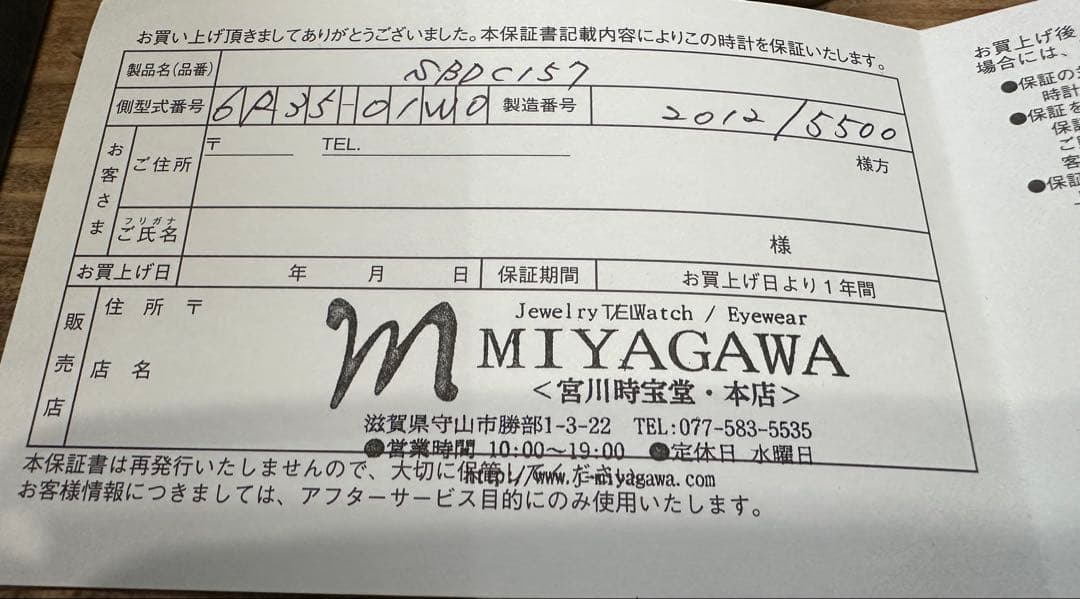 お買い上げ頂きましてありがとうございました。本保証書記載内容によりこの時計を保証いたします。
製品名(品番) SBDC157
側型式番号 6R35-01W0 製造番号 2012/5500
お客さま
ご住所 〒 TEL. 様方
フリガナ
ご氏名 様
お買上げ日 年 月 日 保証期間 お買上げ日より1年間
販売店
住所 〒 TEL
店名
m
Jewelry / Watch / Eyewear
MIYAGAWA
<宮川時宝堂・本店>
滋賀県守山市勝部1-3-22 TEL:077-583-5535
●営業時間 10:00〜19:00 ●定休日 水曜日
本保証書は再発行いたしませんので、大切に保管してください。
-miyagawa.com
お客様情報につきましては、アフターサービス目的にのみ使用いたします。
お買上げ後
場合には、
●保証の
時計
●保証を
保証
ご
客
●保証